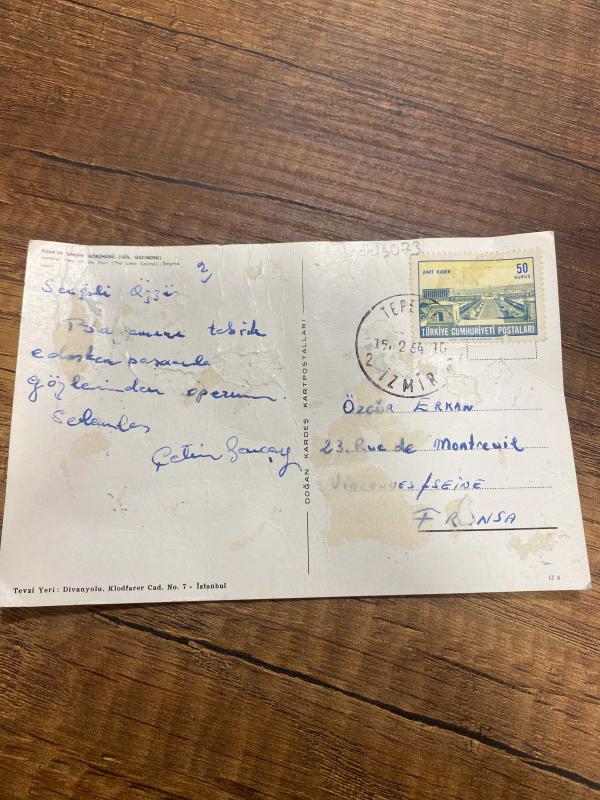 FUAR'IN UMUMİ GÖRÜNÜŞÜ (GÖL GAZİNOSU)
(The Lake Casino) - Smyrna
İzmir
Sevgili Özgür
Bayramını tebrik
ederken
gözlerinden öperim.
Selamlar
Çetin
Tevzi Yeri: Divanyolu, Klodfarer Cad. No. 7 - İstanbul
DOĞAN KARDEŞ KARTPOSTALLARI
ANIT KABİR
50
KURUŞ
TÜRKİYE CUMHURİYETİ POSTALARI
15.2.64
İZMİR
ÖZGÜR ERKAN
23. Rue de Montreuil
Vincennes/SEINE
FRANSA
IZ 6